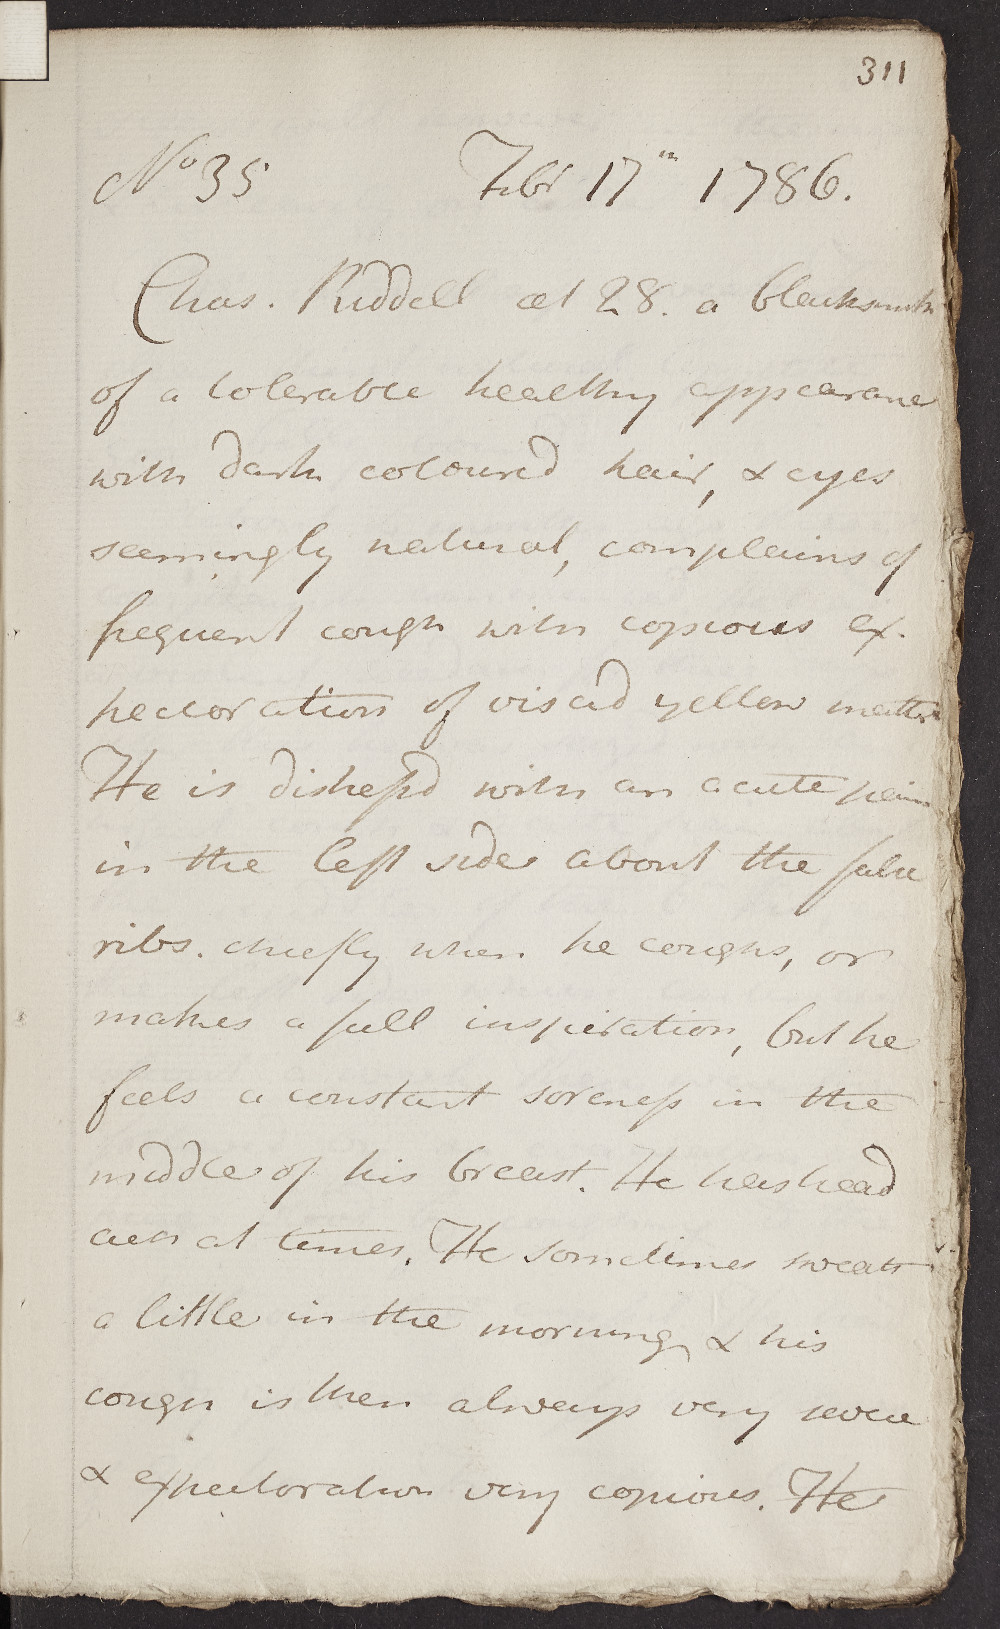 311
No 35 Febr 17th 1786.
Chas. Riddell æt 28. a blacksmith
of a tolerable healthy appearance
with dark coloured hair, & eyes
seemingly natural, complains of
frequent cough with copious ex-
pectoration of viscid yellow matter
He is distress'd with an acute pain
in the left side about the false
ribs. chiefly when he coughs, or
makes a full inspiration, but he
feels a constant soreness in the
middle of his breast. He has head
ach at times. He sometimes sweats
a little in the morning & his
cough is then always very severe
& expectoration very copious. He